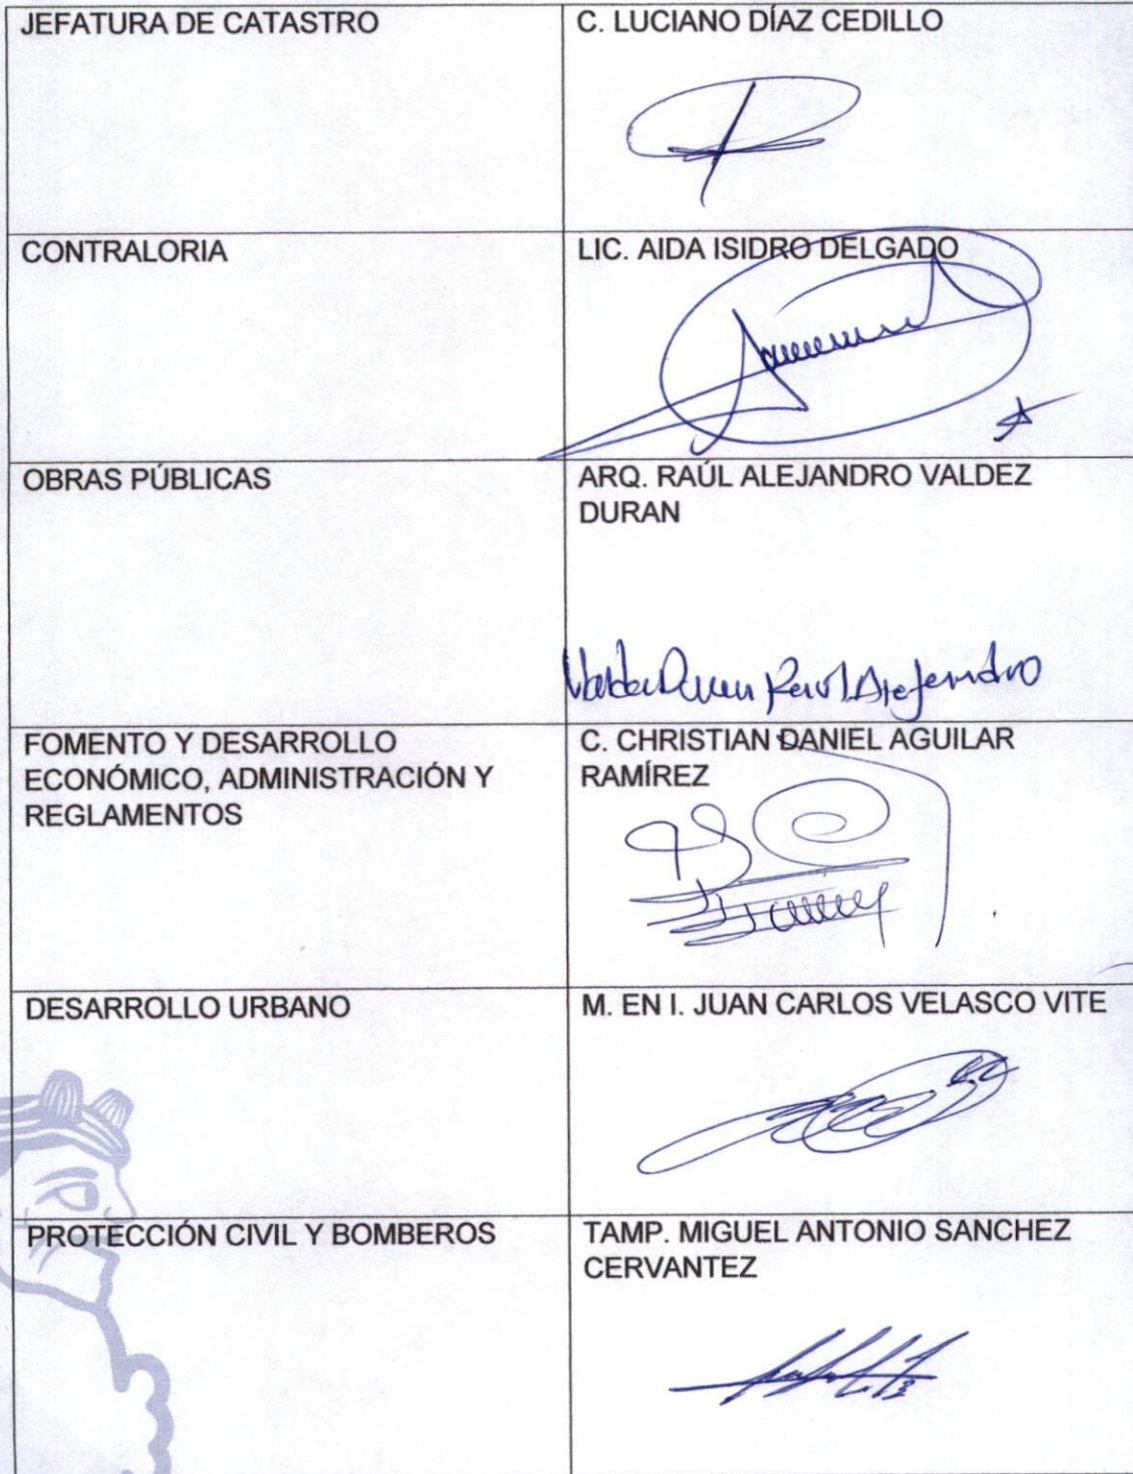 JEFATURA DE CATASTRO
C. LUCIANO DÍAZ CEDILLO
CONTRALORIA
LIC. AIDA ISIDRO DELGADO
OBRAS PÚBLICAS
ARQ. RAÚL ALEJANDRO VALDEZ
DURAN
Raul Alejandro
FOMENTO Y DESARROLLO
ECONÓMICO, ADMINISTRACIÓN Y
REGLAMENTOS
C. CHRISTIAN DANIEL AGUILAR
RAMÍREZ
DESARROLLO URBANO
M. EN I. JUAN CARLOS VELASCO VITE
PROTECCIÓN CIVIL Y BOMBEROS
TAMP. MIGUEL ANTONIO SANCHEZ
CERVANTEZ